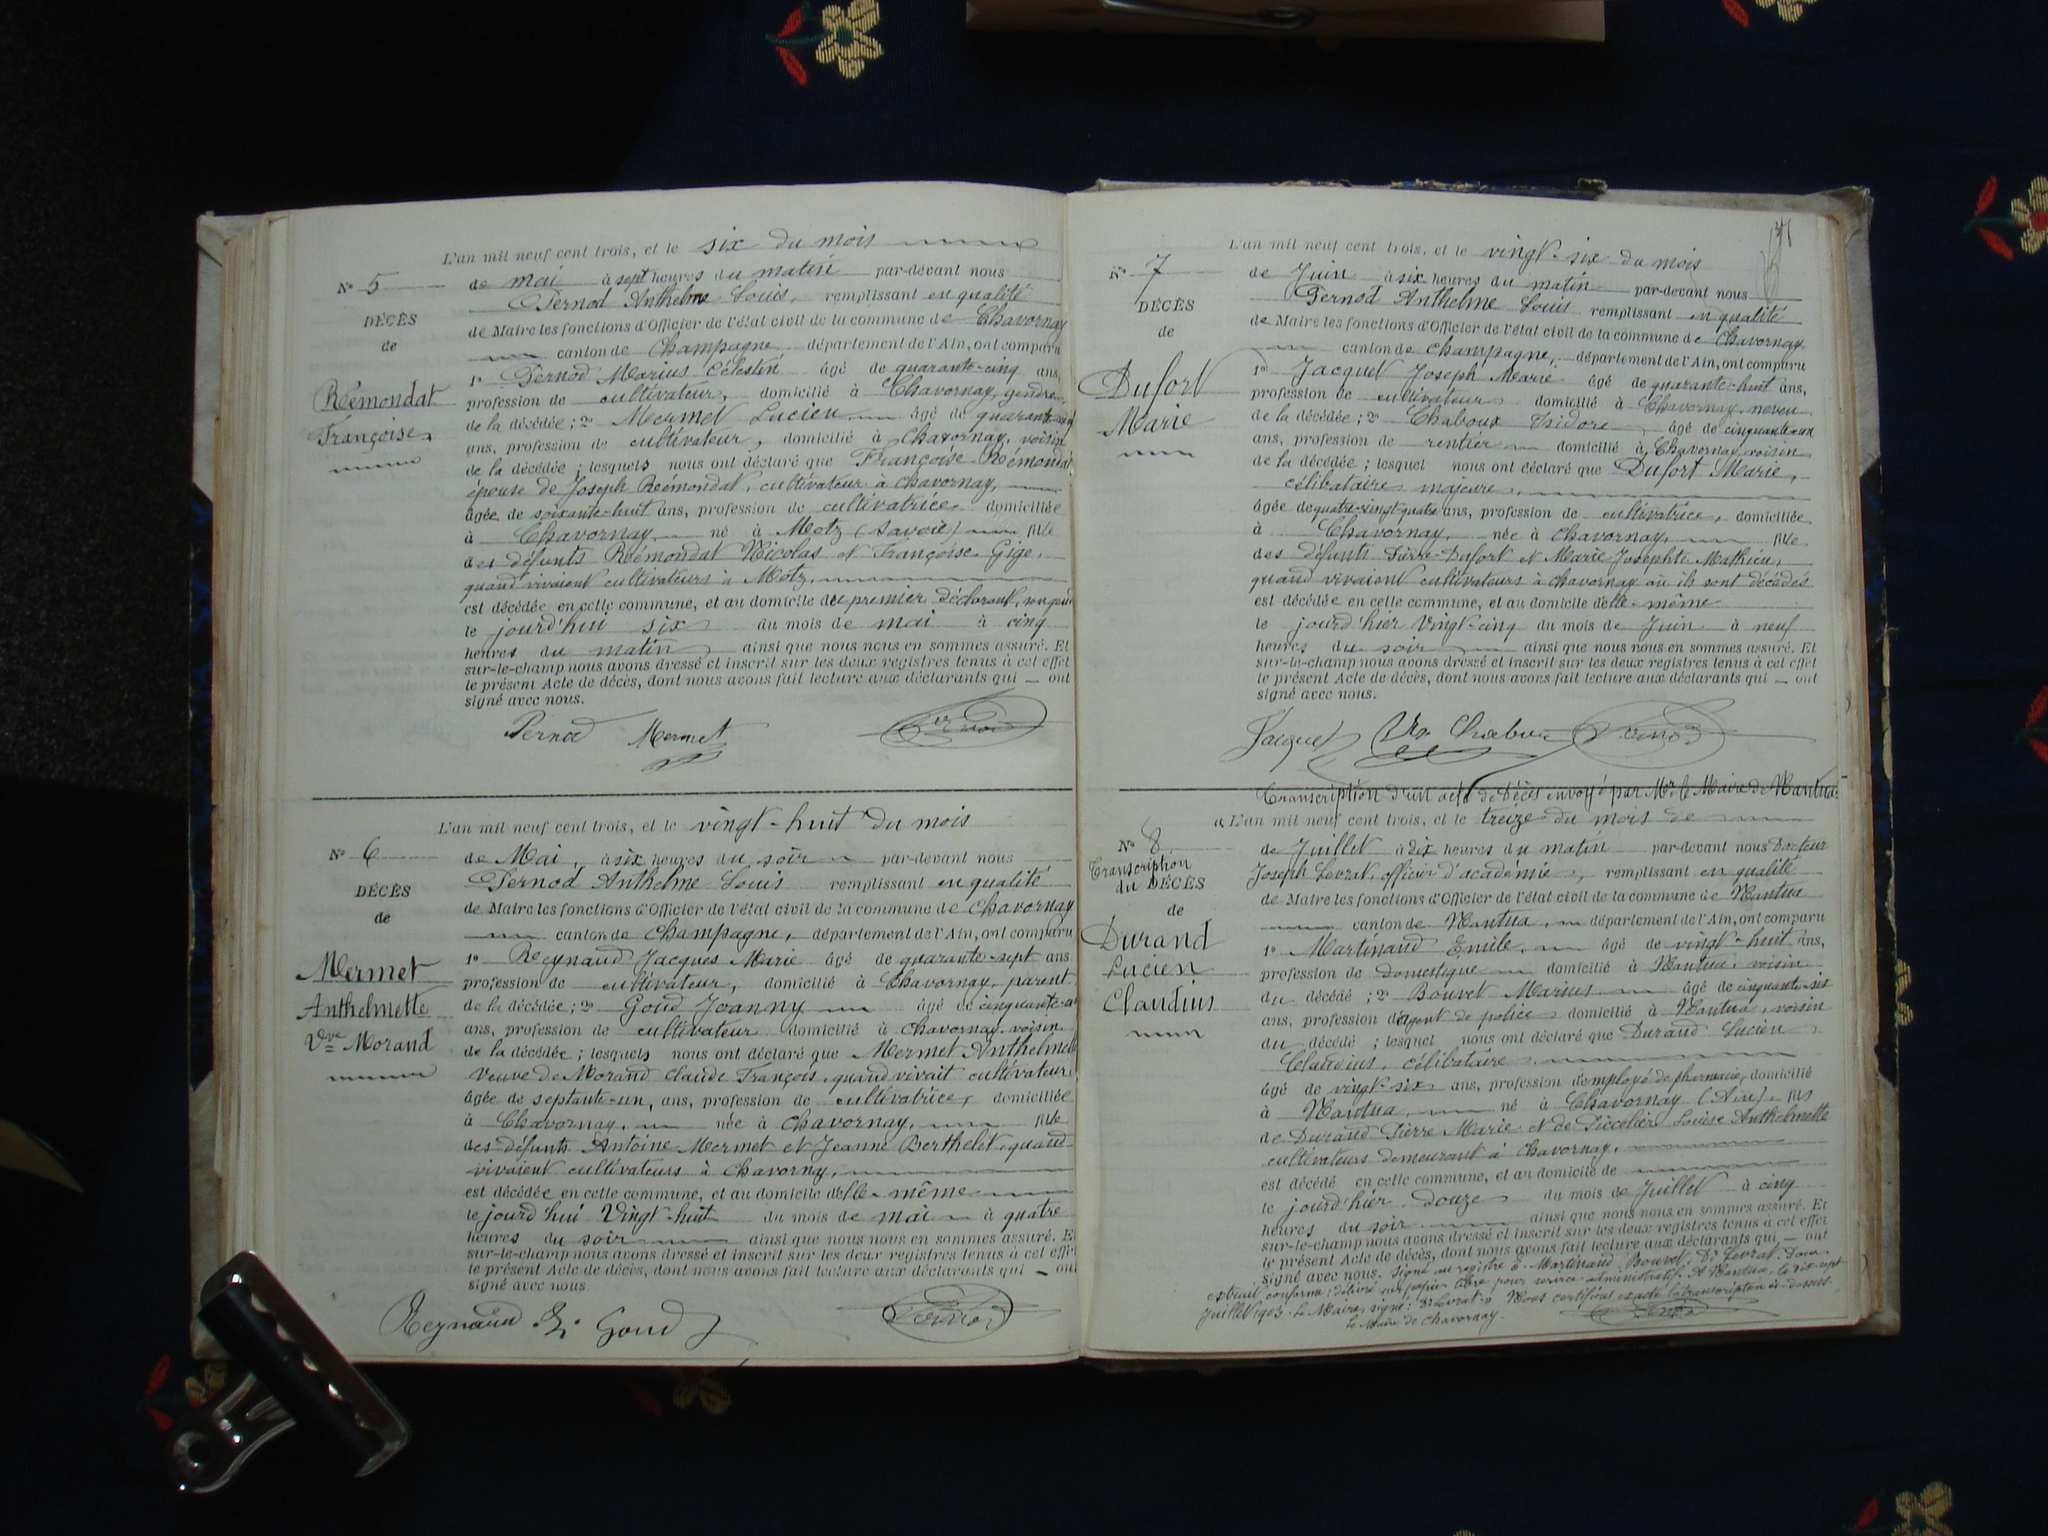 L'an mil neuf cent trois, et le six du mois
N° 5
de mai à sept heures du matin par-devant nous
Pernod Anthelme Louis, remplissant en qualité
DÉCÈS
de Maire les fonctions d'Officier de l'état civil de la commune de Chavornay
de
canton de Champagne, département de l'Ain, ont comparu
1° Pernod Marius Célestin âgé de quarante-cinq ans,
Rémondat
profession de cultivateur, domicilié à Chavornay, gendre
de la décédée ; 2° Mermet Lucien âgé de
Françoise
ans, profession de cultivateur, domicilié à Chavornay, voisin
de la décédée ; lesquels nous ont déclaré que Françoise Rémondat
épouse de Joseph Rémondat, cultivateur à Chavornay,
âgée de soixante-huit ans, profession de cultivatrice domiciliée
à Chavornay né à Motz (Savoie) fille
des défunts Rémondat Nicolas et Françoise Gige,
quand vivaient cultivateurs à Motz,
est décédée en cette commune, et au domicile de premier déclarant, son gendre
le jourd'hui six du mois de mai à cinq
heures du matin ainsi que nous nous en sommes assuré. Et
sur-le-champ nous avons dressé et inscrit sur les deux registres tenus à cet effet
le présent Acte de décès, dont nous avons fait lecture aux déclarants qui — ont
signé avec nous.
Pernod Mermet Pernod
L'an mil neuf cent trois, et le vingt-huit du mois
N° 6
de Mai, à six heures du soir par-devant nous
Pernod Anthelme Louis remplissant en qualité
DÉCÈS
de Maire les fonctions d'Officier de l'état civil de la commune de Chavornay
de
canton de Champagne, département de l'Ain, ont comparu
1° Reynaud Jacques Marie âgé de quarante-sept ans
Mermet
profession de cultivateur, domicilié à Chavornay, parent
Anthelmette
de la décédée ; 2° Goud Joanny âgé de
ans, profession de cultivateur domicilié à Chavornay, voisin
Vve Morand
de la décédée ; lesquels nous ont déclaré que Mermet Anthelmette
veuve de Morand Claude François, quand vivait cultivateur
âgée de septante-un, ans, profession de cultivatrice, domiciliée
à Chavornay, née à Chavornay, fille
des défunts Antoine Mermet et Jeanne Berthelet, quand
vivaient cultivateurs à Chavorny,
est décédée en cette commune, et au domicile d'elle-même
le jourd'hui Vingt-huit du mois de mai à quatre
heures du soir ainsi que nous nous en sommes assuré. Et
sur-le-champ nous avons dressé et inscrit sur les deux registres tenus à cet effet
le présent Acte de décès, dont nous avons fait lecture aux déclarants qui — ont
signé avec nous
Reynaud Goud Pernod
L'an mil neuf cent trois, et le vingt-six du mois
N° 7
de Juin à six heures du matin par-devant nous
Pernod Anthelme Louis remplissant en qualité
DÉCÈS
de Maire les fonctions d'Officier de l'état civil de la commune de Chavornay
de
canton de Champagne, département de l'Ain, ont comparu
1° Jacquet Joseph Marie âgé de quarante-huit ans,
Dufort
profession de cultivateur domicilié à Chavornay, neveu
Marie
de la décédée ; 2° Chaboux Isidore, âgé de cinquante-un
ans, profession de rentier domicilié à Chavornay, voisin
de la décédée ; lesquel nous ont déclaré que Dufort Marie,
célibataire majeure,
âgée de quatre-vingt-quatre ans, profession de cultivatrice, domiciliée
à Chavornay, née à Chavornay, fille
des défunts Pierre Dufort et Marie Josephte Mathieu,
quand vivaient cultivateurs à Chavornay où ils sont décédés
est décédée en cette commune, et au domicile d'elle-même
le jourd'hier Vingt-cinq du mois de Juin à neuf
heures du soir ainsi que nous nous en sommes assuré. Et
sur-le-champ nous avons dressé et inscrit sur les deux registres tenus à cet effet
le présent Acte de décès, dont nous avons fait lecture aux déclarants qui — ont
signé avec nous.
Jacquet Chaboux Pernod
Transcription d'un acte de Décès envoyé par Mr. le Maire de Nantua
« L'an mil neuf cent trois, et le treize du mois de
N° 8
de Juillet à dix heures du matin par-devant nous Docteur
Transcription
du DÉCÈS
Joseph Levrat, officier d'académie, remplissant en qualité
de Maire les fonctions d'Officier de l'état civil de la commune de Nantua
de
canton de Nantua, département de l'Ain, ont comparu
Durand
1° Martinaud Emile, âgé de vingt-huit ans,
Lucien
profession de domestique domicilié à Nantua, voisin
Claudius
du décédé ; 2° Bouvet Marius âgé de cinquante-six
ans, profession d'agent de police domicilié à Nantua, voisin
du décédé ; lesquel nous ont déclaré que Durand Lucien
Claudius, célibataire
âgé de vingt-six ans, profession d'employé de pharmacie, domicilié
à Nantua, né à Chavornay (Ain), fils
de Durand Pierre Marie et de Piccolier Louise Anthelmette
cultivateurs demeurant à Chavornay,
est décédé en cette commune, et au domicile de
le jourd'hier douze du mois de Juillet à cinq
heures du soir ainsi que nous nous en sommes assuré. Et
sur-le-champ nous avons dressé et inscrit sur les deux registres tenus à cet effet
le présent Acte de décès, dont nous avons fait lecture aux déclarants qui — ont
signé avec nous. Signé au registre E. Martinaud, Bouvet, Dr Levrat. Pour
extrait conforme : délivré sur papier libre pour service administratif. A Nantua, le dix-sept
Juillet 1903. Le Maire, signé : Dr Levrat. » Nous certifions exacte la transcription ci-dessus.
Le Maire de Chavornay. Pernod